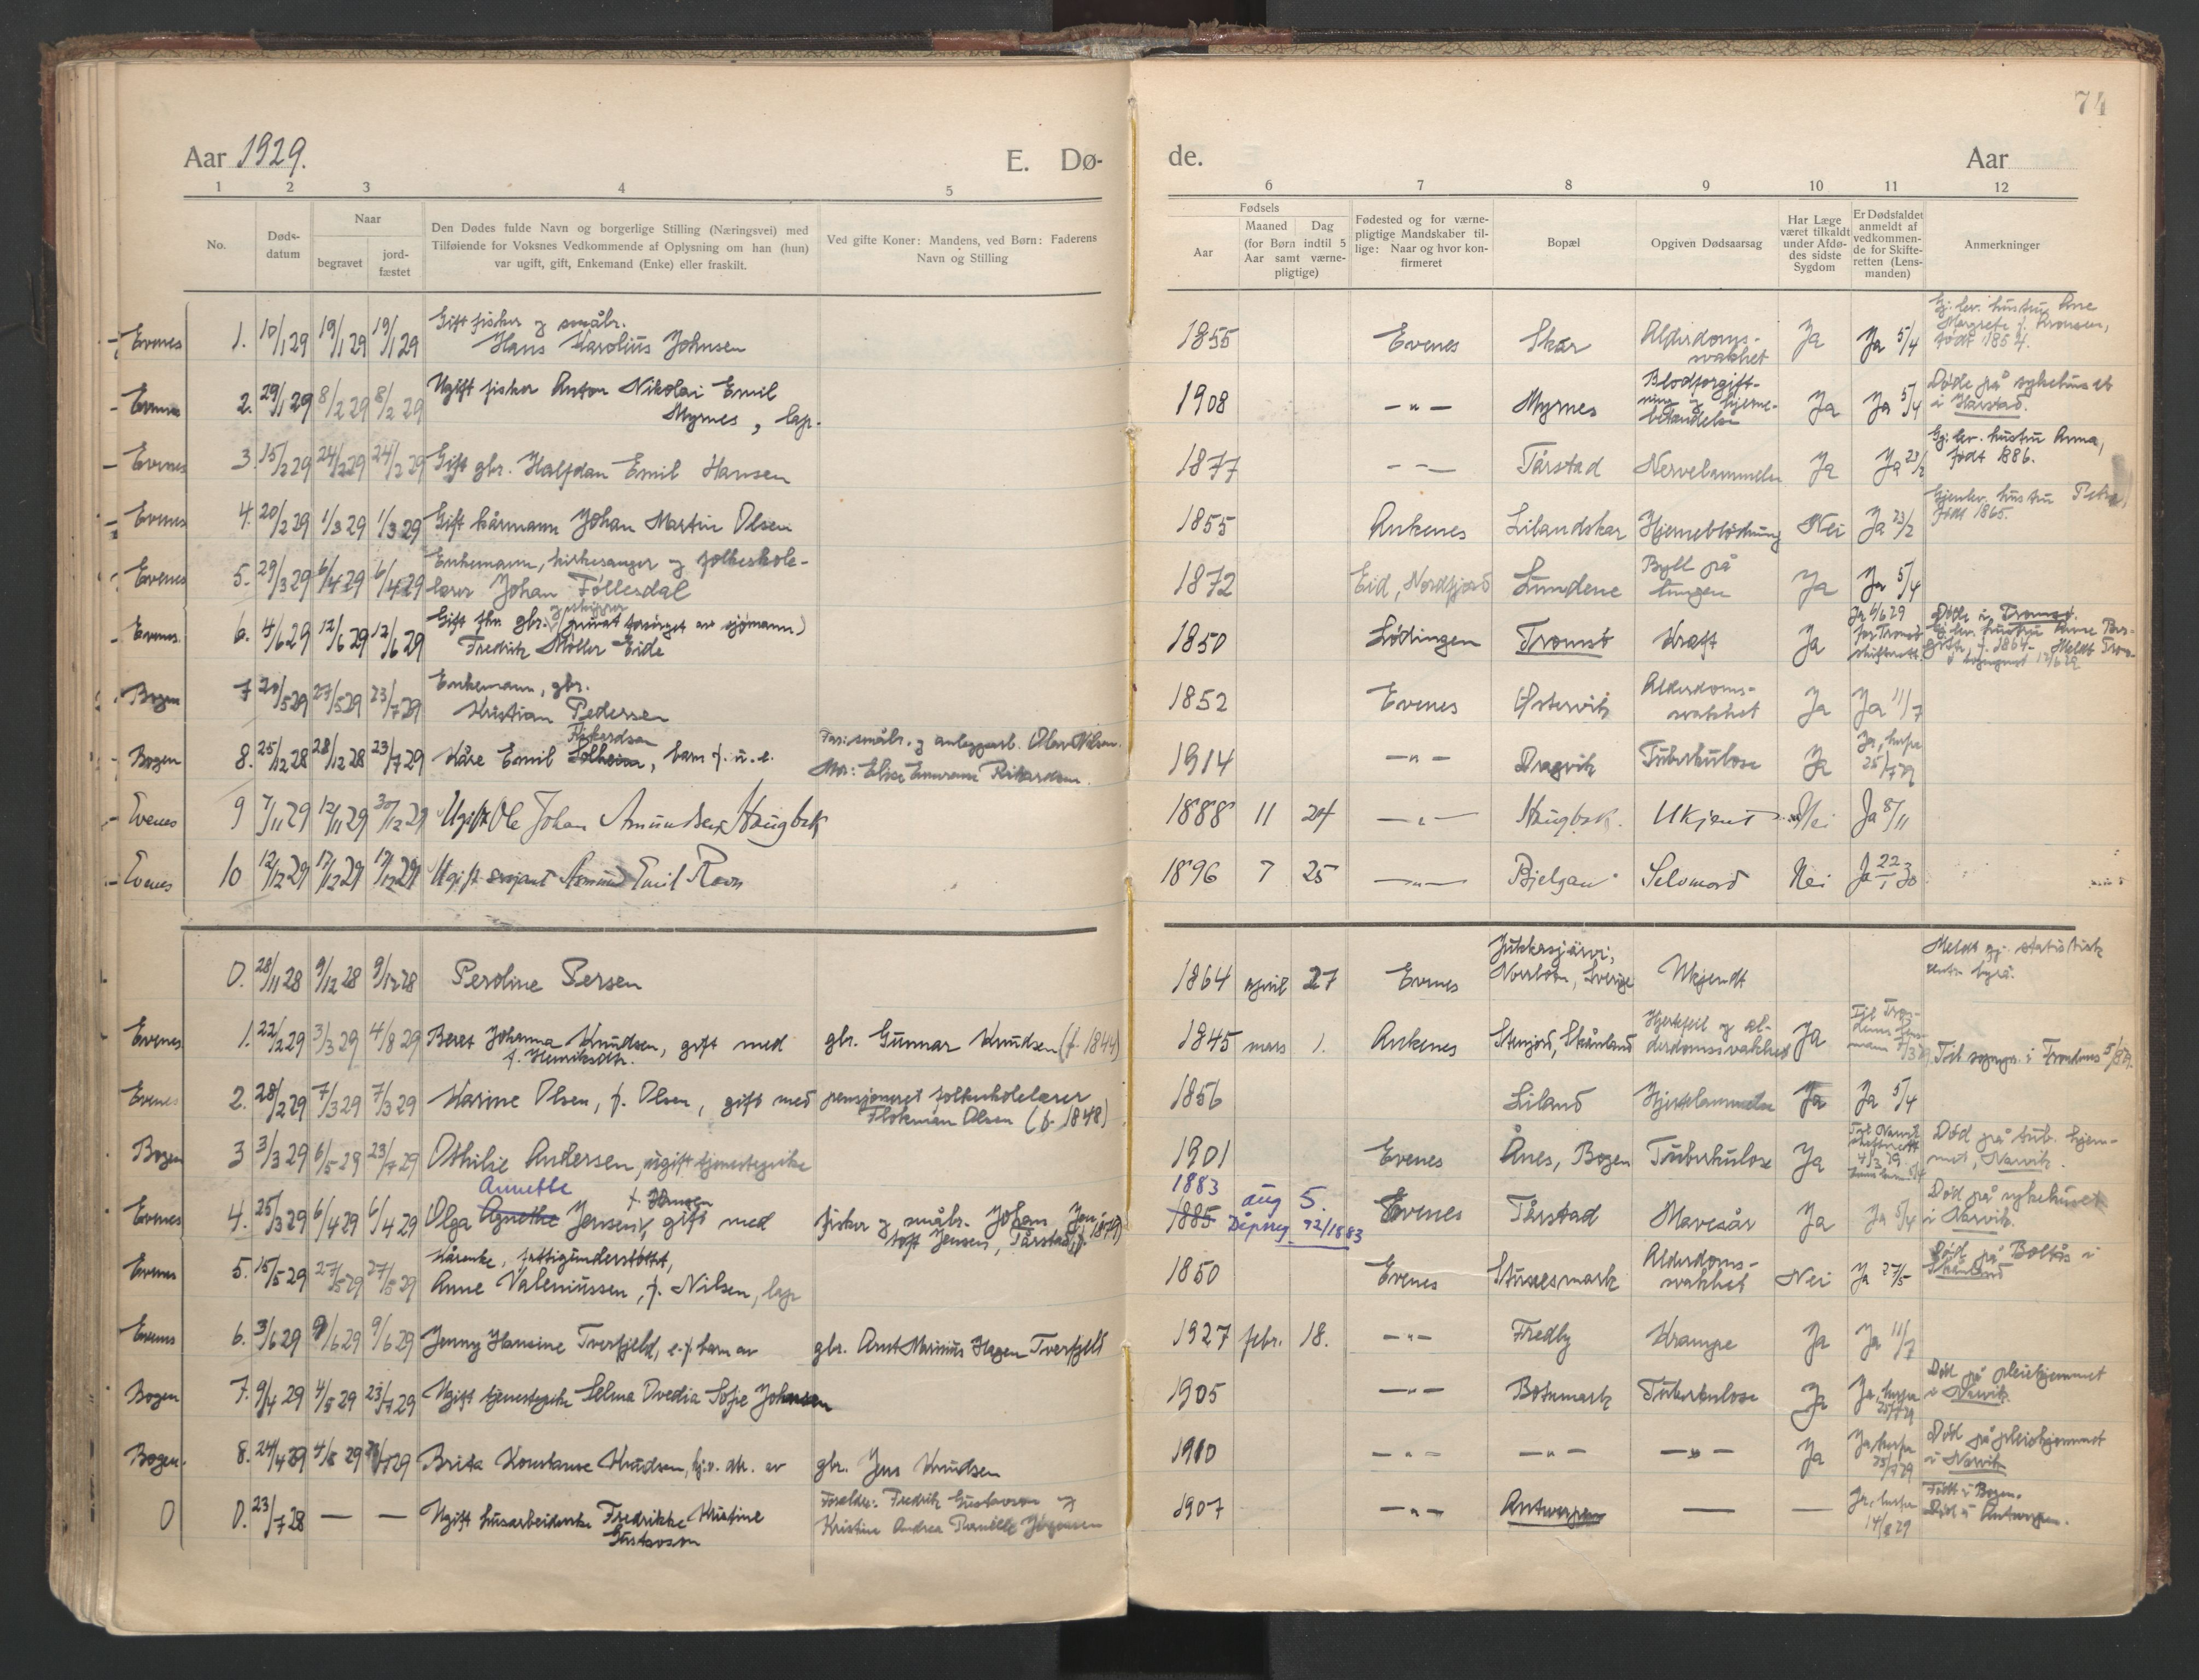 74
Aar 1929. E. Dø- de. Aar
1 2 3 4 5 6 7 8 9 10 11 12
No.
Døds-
datum
Naar
begravet
jord-
fæstet
Den Dødes fulde Navn og borgerlige Stilling (Næringsvei) med
Tilføiende for Voksnes Vedkommende af Oplysning om han (hun)
var ugift, gift, Enkemand (Enke) eller fraskilt.
Ved gifte Koner: Mandens, ved Børn: Faderens
Navn og Stilling
Fødsels
Aar
Maaned Dag
(for Børn indtil 5
Aar samt værne-
pligtige)
Fødested og for værne-
pligtige Mandskaber til-
lige: Naar og hvor kon-
firmeret
Bopæl
Opgiven Dødsaarsag
Har Læge
været tilkaldt
under Afdø-
des sidste
Sygdom
Er Dødsfaldet
anmeldt af
vedkommen-
de for Skifte-
retten (Lens-
manden)
Anmerkninger
Evenes 1. 10/1 29 19/1 29 19/1 29 Gift fisker og småbr.
Hans Karolius Johnsen
1855 Evenes Skar Alderdoms-
svakhet
Ja Ja 5/4 Gj.lev. hustru Ane
Margrete f. Aronsen,
født 1854.
Evenes 2. 29/1 29 8/2 29 8/2 29 Ugift fisker Anton Nikolai Emil
Myrnes, lap.
1908 -"- Myrnes Blodforgift-
ning og hjerne-
betændelse
Ja Ja 5/4 Døde på sykehuset
i Harstad.
Evenes 3. 15/2 29 24/2 29 24/2 29 Gift gbr. Halfdan Emil Hansen
1877 -"- Tårstad Nervelammelse Ja Ja 23/2 Gj.lev. hustru Anna,
født 1886.
Evenes 4. 20/2 29 1/3 29 1/3 29 Gift kårmann Johan Martin Olsen
1855 Ankenes Lilandskar Hjerneblødning Nei Ja 23/2 Gjenlev. hustru Petra,
født 1865.
Evenes 5. 29/3 29 6/4 29 6/4 29 Enkemann, kirkesanger og folkeskole-
lærer Johan Føllesdal
1872 Eid, Nordfjord Lundene Byll på
lungen
Ja Ja 5/4
Evenes 6. 4/6 29 12/6 29 12/6 29 Gift fhv. gbr. og skipper (privat forsørget av sjømann)
Fredrik Møller Eide
1850 Lødingen Tromsø Kræft Ja Ja 6/6 29
for Tromsø
skifterett
Døde i Tromsø.
Gj.lev. hustru Anne
f. 1864. Meldt
12/6 29
Bogen 7 20/5 29 27/5 29 23/7 29 Enkemann, gbr.
Kristian Pedersen
1852 Evenes Østervik Alderdoms-
svakhet
Ja Ja 11/7
Bogen 8. 25/12 28 28/12 28 23/7 29 Kåre Emil Solheim, Rikardsen barn f. u. e.
Far: småbr. og anleggsarb. Olav Nilsen.
Mor: Elise Rikardsen.
1914 -"- Dragvik Tuberkulose Ja Ja,
25/7 29
Evenes 9 7/11 29 12/11 29 30/12 29 Ugift Ole Johan Amundsen Haugbak
1888 11 24 -"- Haugbak. Ukjent Nei Ja 8/11
Evenes 10 12/12 29 17/12 29 17/12 29 Ugift sersjant Asmund Emil Ravn
1896 7 25 -"- Bjelgam Selvmord Nei Ja 22/1 30
0. 28/11 28 9/12 28 9/12 28 Peroline Persen
1864 april 27 Evenes Jukkasjärvi,
Norrbotn, Sverige
Ukjendt Meldt gj. statistisk
centr. byrå.
Evenes 1. 22/2 29 3/3 29 4/8 29 Beret Johanna Knudsen, gift med
f. Henriksdtr.
gbr. Gunnar Knudsen (f. 1844)
1845 mars 1. Ankenes Stenjord, Skånland Hjertefeil og al-
derdomssvakhed
Ja Til Tron-
denes lens-
mann 5/3 29
Til sogepr. i Trondenes 5/8 29.
Evenes 2. 28/2 29 7/3 29 7/3 29 Karine Olsen, f. Olsen, gift med pensjonert folkeskolelærer
Flokman Olsen (f. 1848)
1856 Liland Hjertelammelse Ja Ja 5/4
Bogen 3 3/3 29 6/5 29 23/7 29 Othilie Andersen, ugift tjenestepike
1901 Evenes Ånes, Bogen Tuberkulose Ja Til Narvik
skifterett
4/3 29.
Død på tub. hjem-
met, Narvik.
Evenes 4. 25/3 29 6/4 29 6/4 29 Olga Agnethe Annette Jensen, f. Hansen gift med
fisker og småbr. Johan Jen-
toft Jensen, Tårstad, f. 1879)
1883
1885 aug 5.
Dåpsreg. 72/1883
Evenes Tårstad Mavesår Ja Ja 5/4 Død på sykehuset
i Narvik.
Evenes 5. 15/5 29 27/5 29 27/5 29 Kårenke, fattigunderstøttet,
Anne Valeniussen, f. Nilsen, lap
1850 Evenes Stunesmark Alderdoms-
svakhet
Nei Ja 27/5 Død på Boltås i
Skånland
Evenes 6. 3/6 29 9/6 29 9/6 29 Jenny Hansine Tverfjeld, e.f. barn av
gbr. Arnt Marinius Hagen Tverfjeld
1927 febr. 18. -"- Fredly Krampe Ja Ja 11/7
Bogen 7. 9/4 29 4/5 29 23/7 29 Ugift tjenestepike Selma Ovedia Sofie Johnsen
1905 -"- Botnmark Tuberkulose Ja Ja,
25/7 29
Død på pleiehjemmet
i Narvik
Bogen. 8. 24/4 29 4/5 29 23/7 29 Brita Konstanse Knudsen, hj.v. dtr. av
gbr. Jens Knudsen
1910 -"- -"- -"- Ja Ja,
25/7 29
Død på pleiehjemmet
i Narvik
0 0. 23/7 28 — — Ugift husarbeiderske Fredrikke Kristine
Gustavson
Forelder: Fredrik Gustavson og
Kristine Andrea Pernille Jørgensen
1907 -"- Antwerpen — — Ja,
14/8 29
Født i Bogen.
Død i Antwerpen.